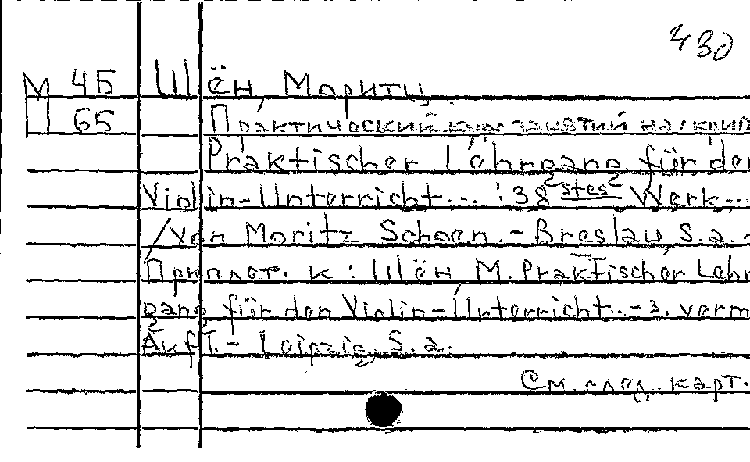 430
М 4Б Шён, Мориту
Ш 65 Практический курс занятий на скрип
Praktischer Lehrgang für den
Violin-Unterricht... : 38stes Werk...
/von Moritz Schoen. - Breslau, S.a. -
Приплет. к: Шён М. Praktischer Lehr
gang für den Violin-Unterricht. - 3. verm
Aufl. - Leipzig, S.a.
См. след. карт.